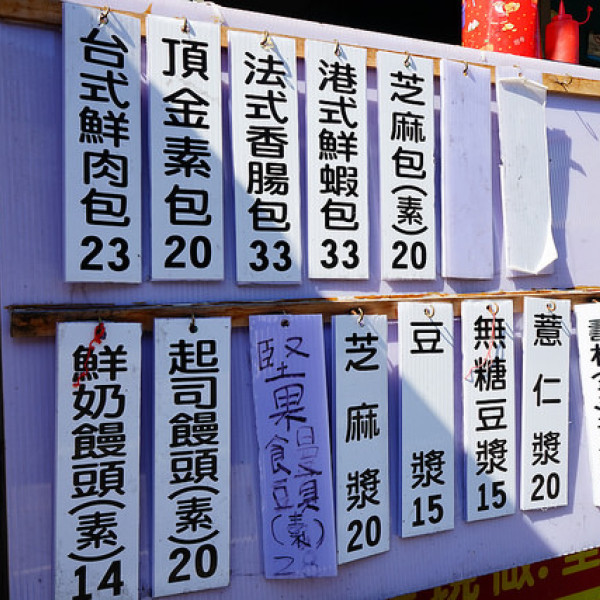 台式鮮肉包 23
頂金素包 20
法式香腸包 33
港式鮮蝦包 33
芝麻包(素) 20
鮮奶饅頭(素) 14
起司饅頭(素) 20
堅果饅頭(素)
芝麻漿 20
豆漿 15
無糖豆漿 15
薏仁漿 20